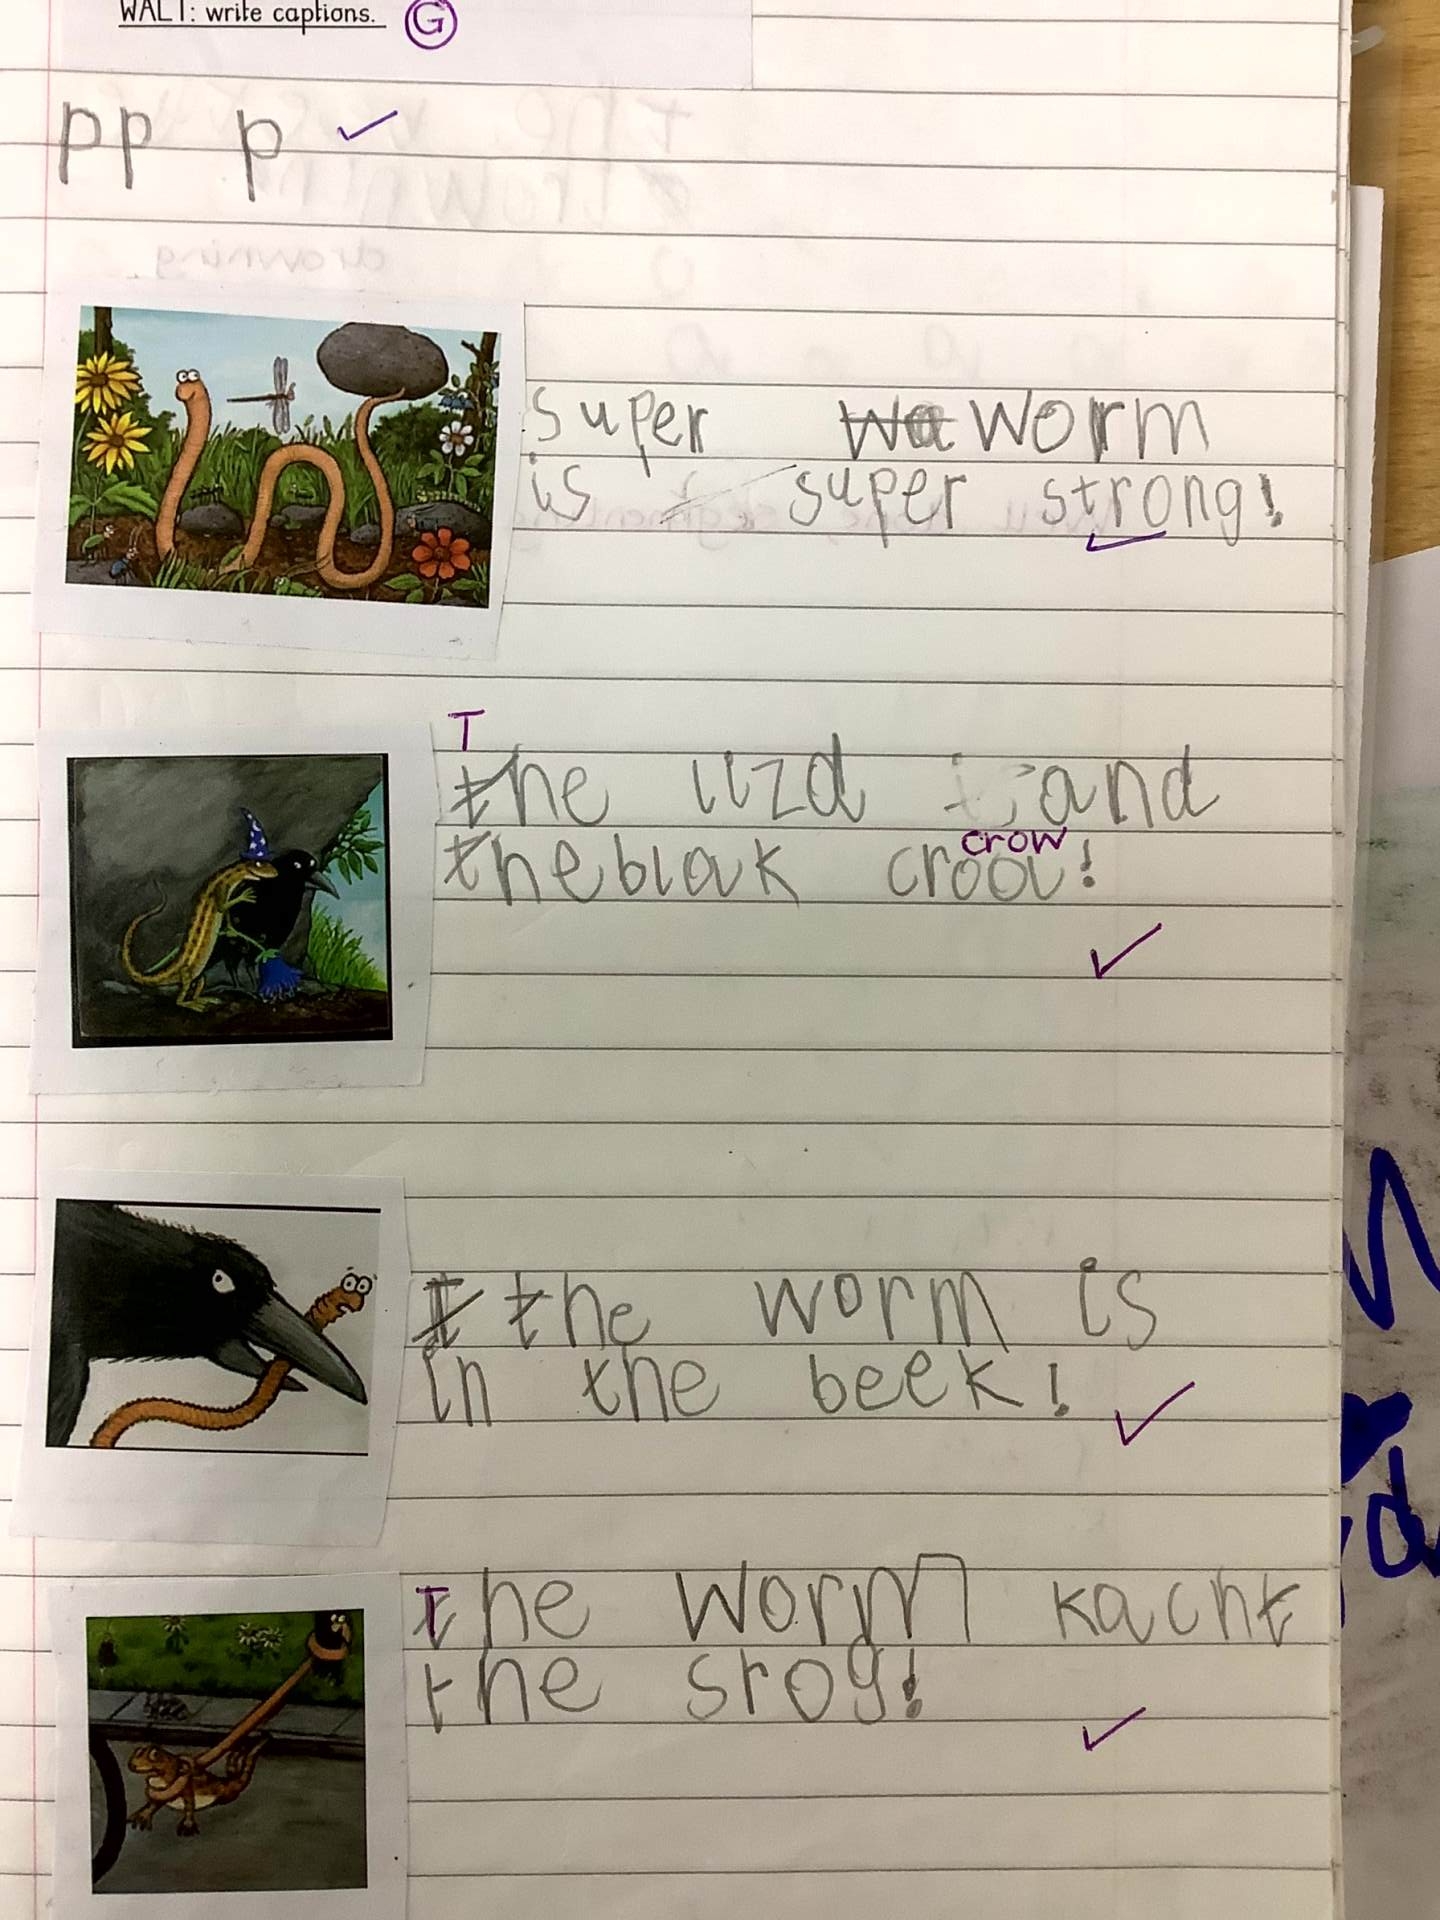 WALT: write captions. G
pp p
super worm
is super strong!
T
the lizd and
crow
the blak croow!
the worm is
in the beek!
The worm kacht
the srog!